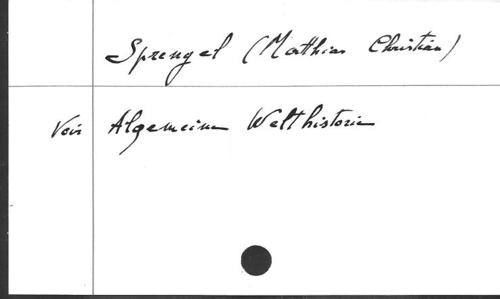 Sprengel (Matthias Christian)
Voir Algemeine Welthistorie